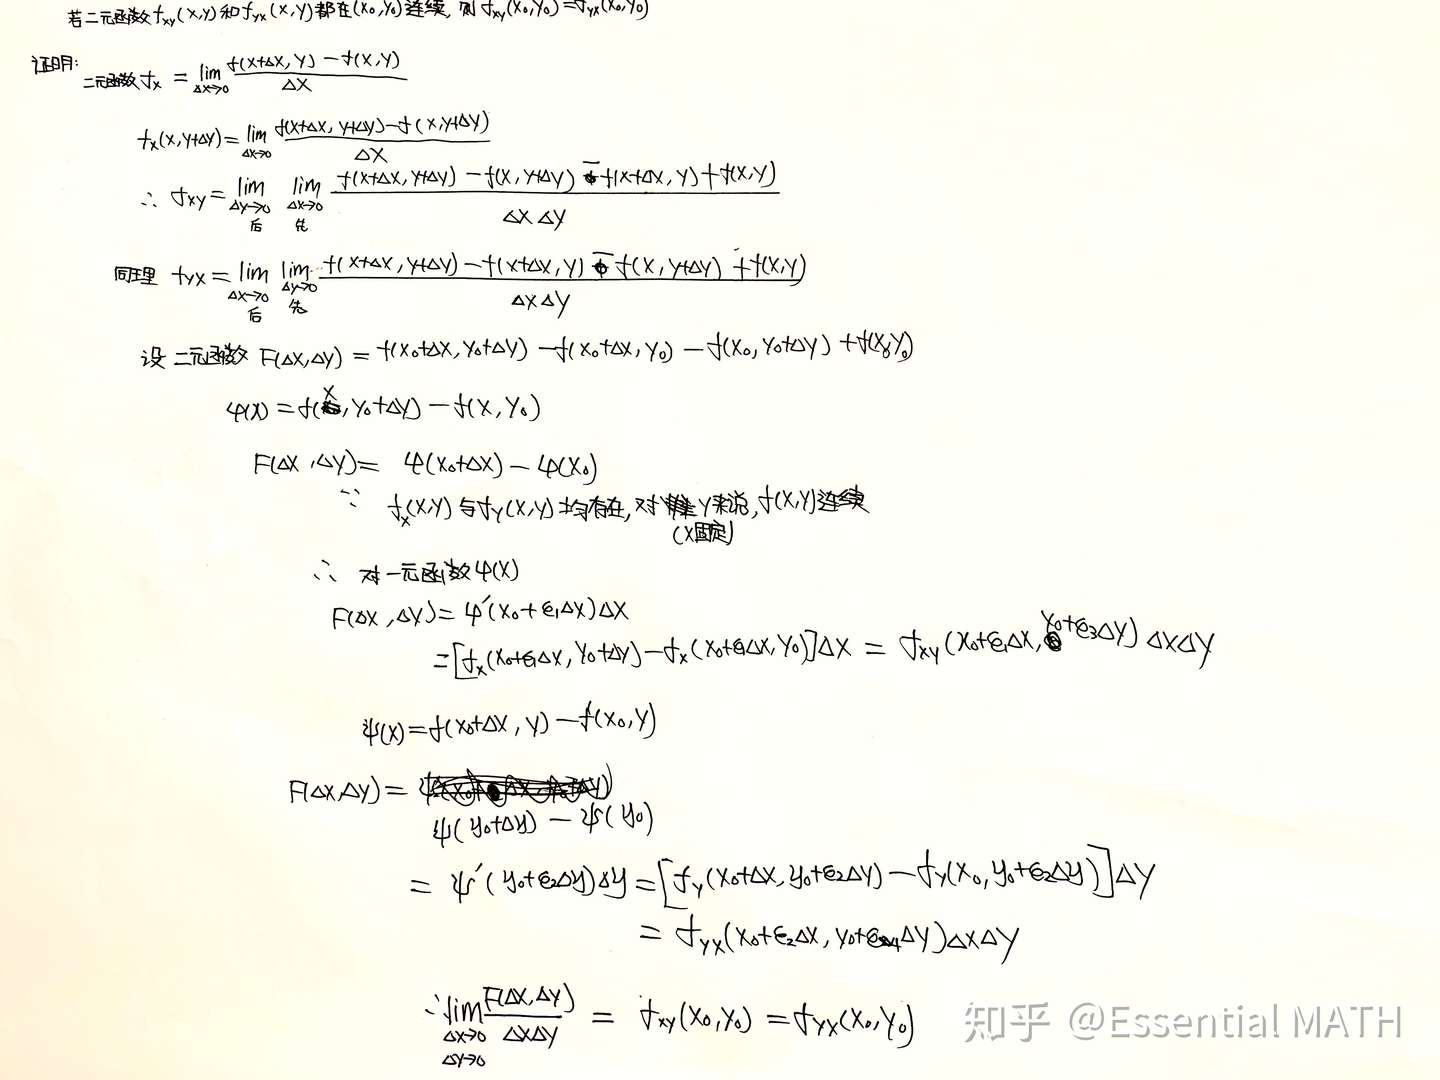 若二元函数 f_xy(x,y) 和 f_yx(x,y) 都在(x₀,y₀)连续, 则 f_xy(x₀,y₀)=f_yx(x₀,y₀)
证明:
二元函数 f_x = lim_{Δx→0} (f(x+Δx, y) − f(x,y)) / Δx
f_x(x,y+Δy) = lim_{Δx→0} (f(x+Δx, y+Δy) − f(x,y+Δy)) / Δx
∴ f_xy = lim_{Δy→0 后} lim_{Δx→0 先} (f(x+Δx, y+Δy) − f(x, y+Δy) − f(x+Δx, y) + f(x,y)) / ΔxΔy
同理 f_yx = lim_{Δx→0 后} lim_{Δy→0 先} (f(x+Δx, y+Δy) − f(x+Δx, y) − f(x, y+Δy) + f(x,y)) / ΔxΔy
设 二元函数 F(Δx,Δy) = f(x₀+Δx, y₀+Δy) − f(x₀+Δx, y₀) − f(x₀, y₀+Δy) + f(x₀,y₀)
φ(x) = f(x, y₀+Δy) − f(x, y₀)
F(Δx,Δy) = φ(x₀+Δx) − φ(x₀)
∵ f_x(x,y) 与 f_y(x,y) 均存在, 对 y来说, f(x,y)连续
(x固定)
∴ 对一元函数 φ(x)
F(Δx,Δy) = φ′(x₀+ε₁Δx)Δx
= [f_x(x₀+ε₁Δx, y₀+Δy) − f_x(x₀+ε₁Δx, y₀)]Δx = f_xy(x₀+ε₁Δx, y₀+ε₃Δy)ΔxΔy
ψ(x) = f(x₀+Δx, y) − f(x₀,y)
F(Δx,Δy) =
ψ(y₀+Δy) − ψ(y₀)
= ψ′(y₀+ε₂Δy)Δy = [f_y(x₀+Δx, y₀+ε₂Δy) − f_y(x₀, y₀+ε₂Δy)]Δy
= f_yx(x₀+ε₂Δx, y₀+ε₄Δy)ΔxΔy
∵ lim_{Δx→0 Δy→0} F(Δx,Δy) / ΔxΔy = f_xy(x₀,y₀) = f_yx(x₀,y₀)
知乎 @Essential MATH